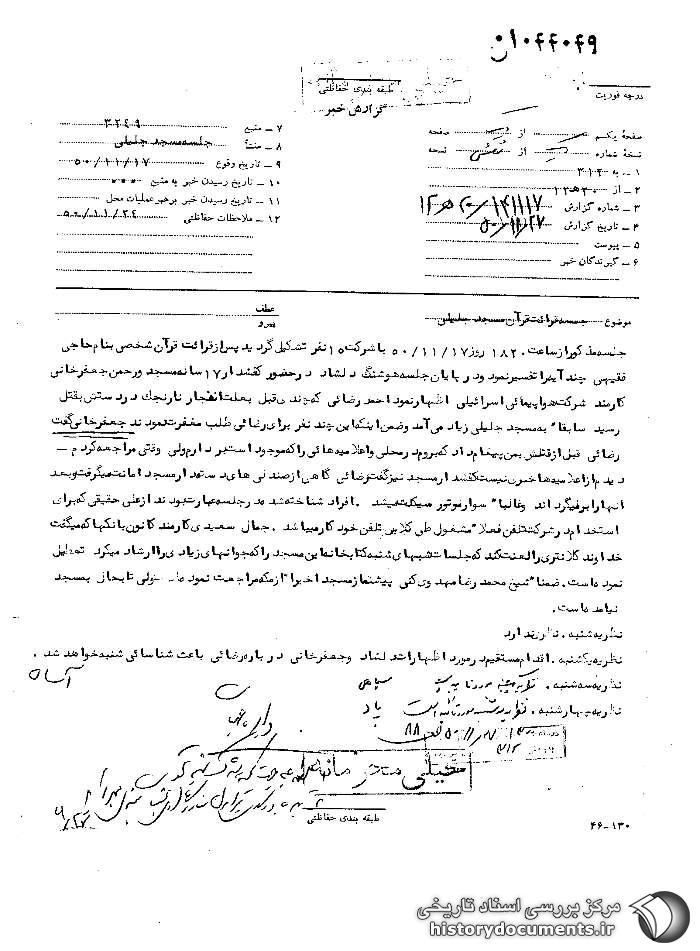 ۰۱۰۴۴۰۴۹
درجه فوریت
طبقه بندی حفاظتی
گزارش خبر
صفحهٔ یکم از صفحه
نسخهٔ شماره از نسخه
۱ ــ به ۳۱۲
۲ ــ از ۲۰ ه ۱۲
۳ ــ شماره گزارش ۱۴۱۱۱۷/ ۲۰ ه ۱۲
۴ ــ تاریخ گزارش ۵۰/۱۱/۲۷
۵ ــ پیوست
۶ ــ گیرندگان خبر
۷ ــ منبع ۳۲۴۹
۸ ــ منشأ جلسه مسجد جلیلی
۹ ــ تاریخ وقوع ۵۰/۱۱/۱۷
۱۰ ــ تاریخ رسیدن خبر به منبع
۱۱ ــ تاریخ رسیدن خبر برهبر عملیات محل
۱۲ ــ ملاحظات حفاظتی ۵۰/۱۱/۲۴
موضوع جلسه قرائت قرآن مسجد جلیلی
عطف
پیرو
جلسه مذکور از ساعت ۱۸۲۰ روز ۵۰/۱۱/۱۷ با شرکت ۱۵ نفر تشکیل گردید پس از قرائت قرآن شخصی بنام حاجی
فقیهی چند آیه را تفسیر نمود و در پایان جلسه هوشنگ دلشاد در حضور کفشدار ۱۷ ساله مسجد و رحمن جعفرخانی
کارمند شرکت هواپیمائی اسرائیلی اظهار نمود احمد رضائی که چندی قبل بعلت انفجار نارنجک در دستش بقتل
رسید سابقا" به مسجد جلیلی زیاد می آمد و ضمن اینکه این چند نفر برای رضائی طلب مغفرت نمودند جعفرخانی گفت
رضائی قبل از قتلش بمن پیغام داد که بروم در محلی و اعلامیه هائی را که موجود است بردارم ولی وقتی مراجعه کردم ــ
دیدم از اعلامیه ها خبری نیست کفشدار مسجد نیز گفت رضائی گاهی از صندلی های دسته دار مسجد امانت میگرفت و بعد
آنها را بر میگرداند و غالبا" سوار موتور سیکلت میشد . افراد شناخته شده در جلسه عبارت بودند از علی حقیقی که برای
استخدام در شرکت تلفن فعلا" مشغول طی کلاس تلفن خود کار میباشد . جمال سعیدی کارمند کانون بانکها که میگفت
خداوند کلانتری را لعنت کند که جلسات شبهای شنبه کتابخانه این مسجد را که جوانهای زیادی را ارشاد میکرد تعطیل
نموده است . ضمنا" شیخ محمد رضا مهدوی کنی پیشنماز مسجد اخیرا" از مکه مراجعت نموده ولی تا بحال بمسجد
نیامده است .
نظریه شنبه . نظری ندارد
نظریه یکشنبه . اقدام مستقیم در مورد اظهارات دلشاد و جعفرخانی در باره رضائی باعث شناسائی شنبه خواهد شد .
نظریه سه شنبه . نظریه یکشنبه مورد تائید است سپاهی
نظریه چهارشنبه . نظریه سه شنبه مورد تائید است یاد
آساه
طبقه بندی حفاظتی
۴۶-۱۳۰
مرکز بررسی اسناد تاریخی
historydocuments.ir